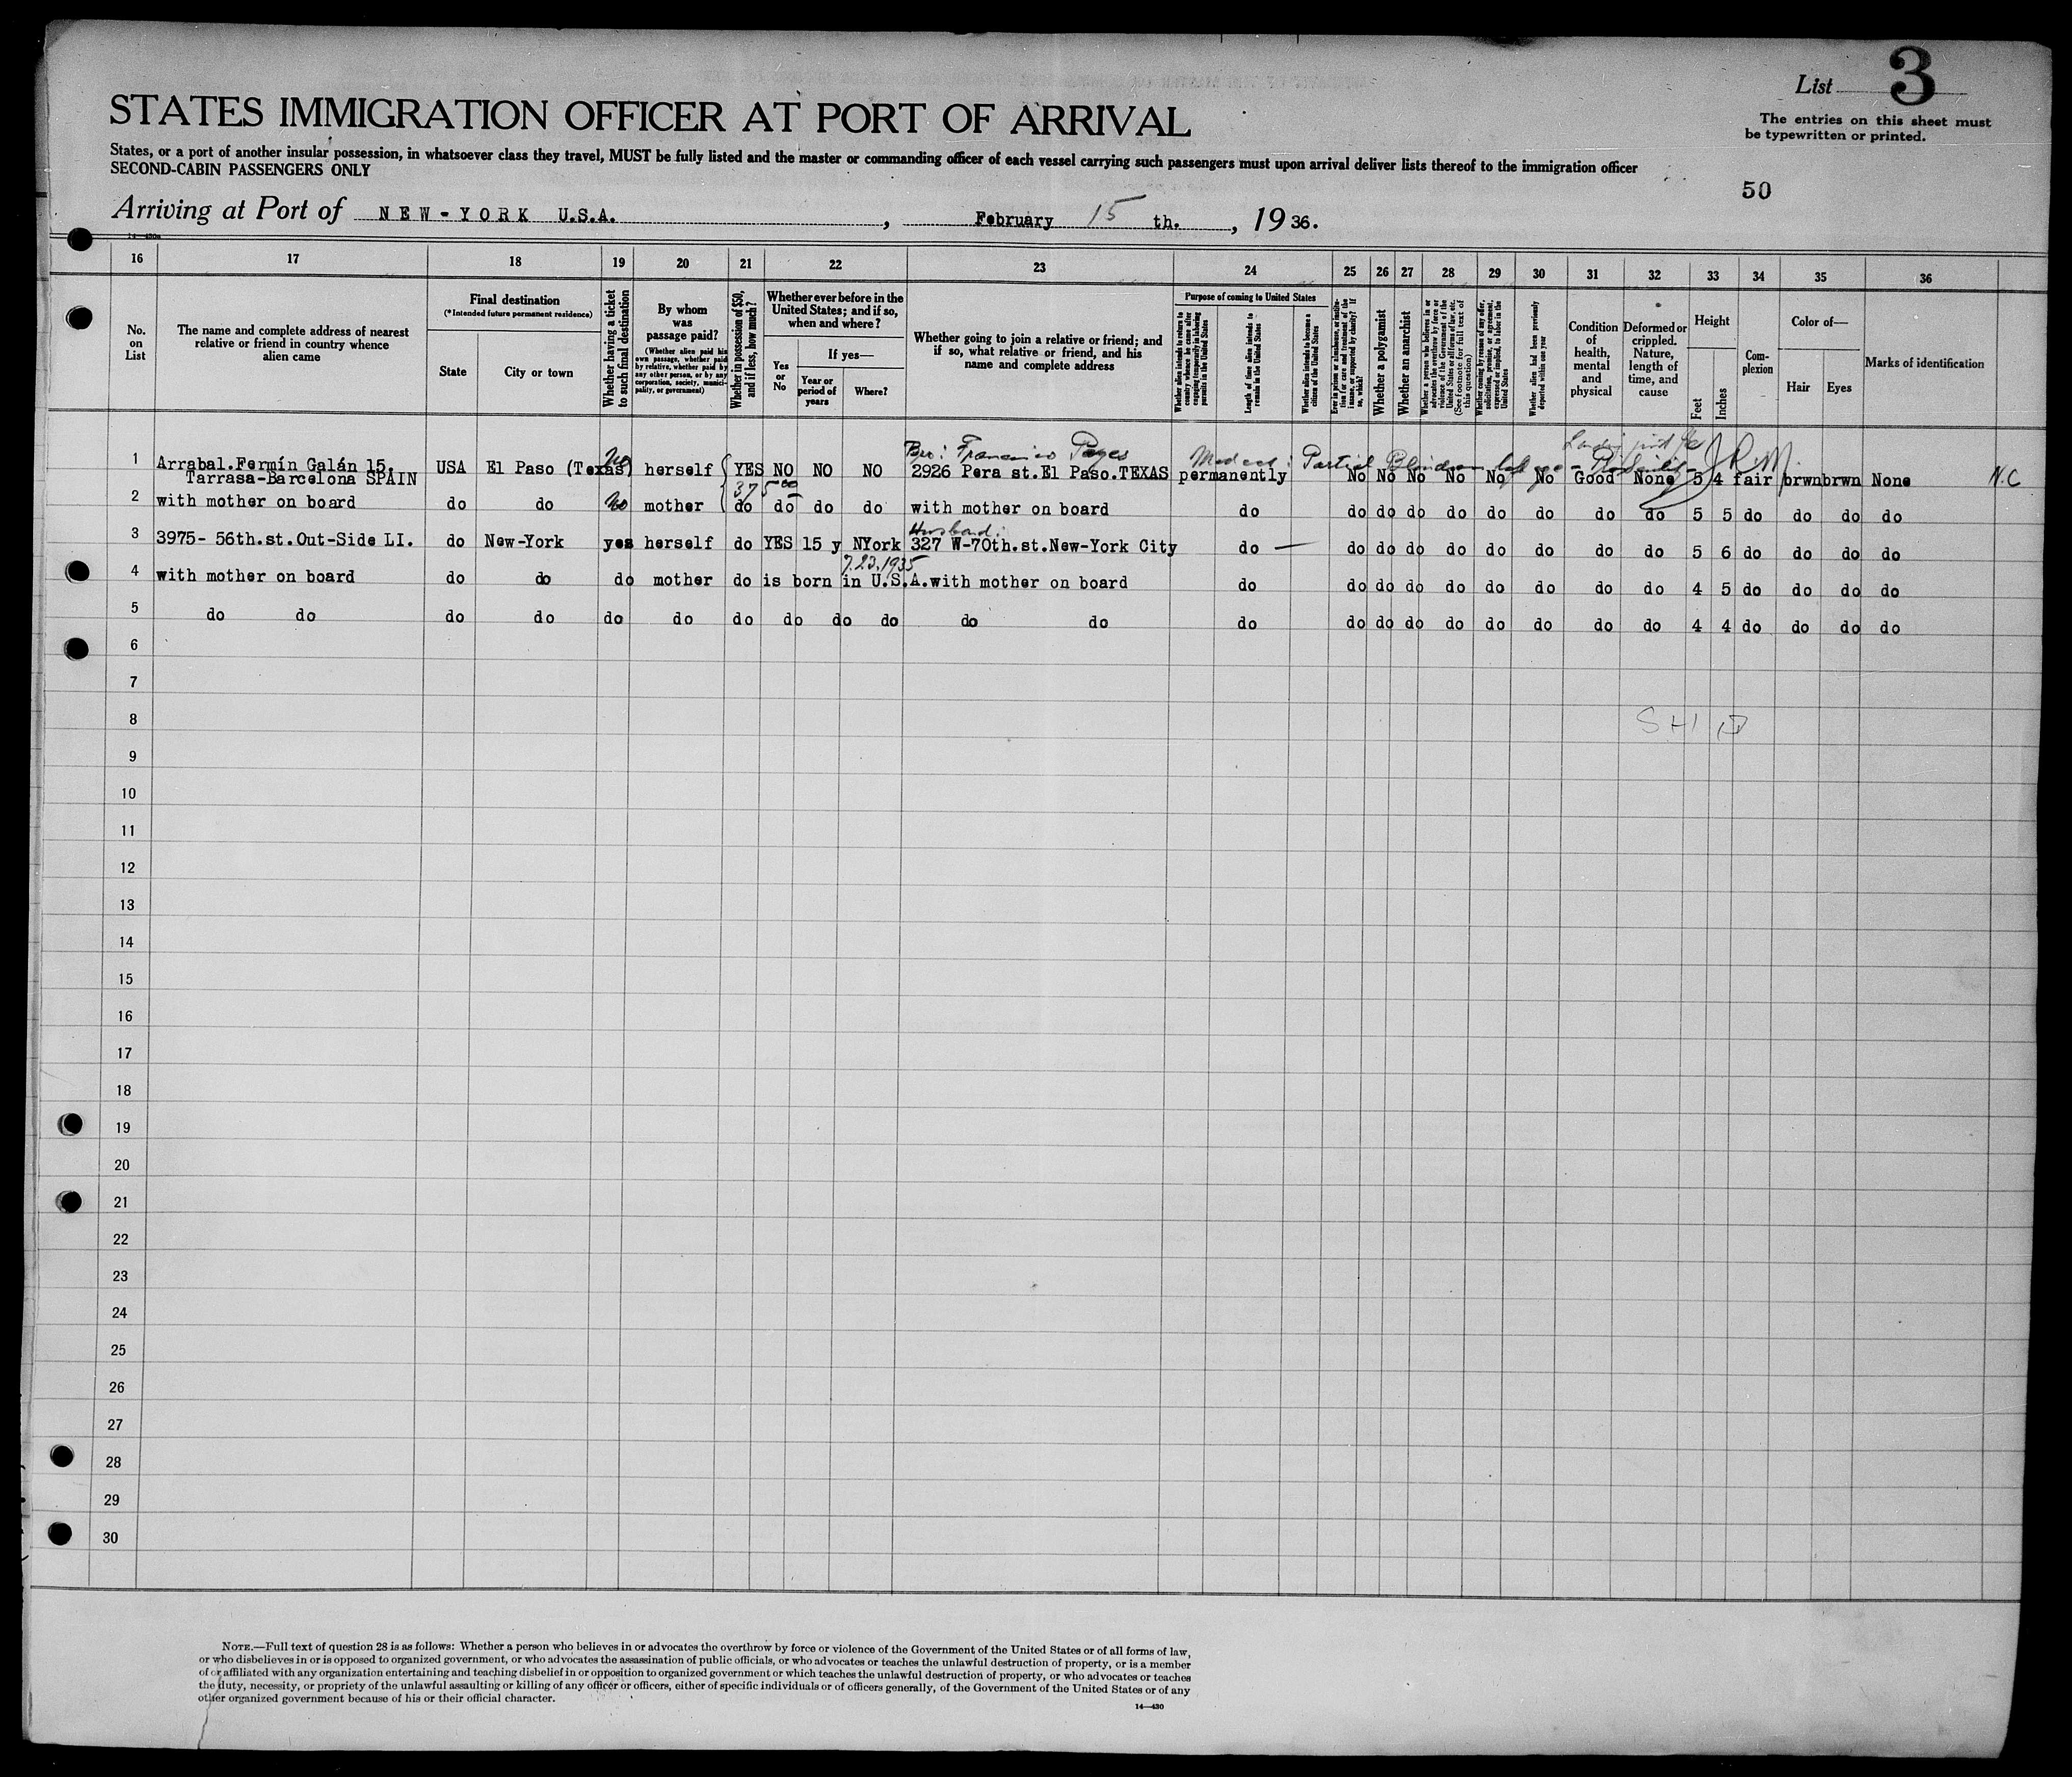 List 3
STATES IMMIGRATION OFFICER AT PORT OF ARRIVAL
The entries on this sheet must
be typewritten or printed.
States, or a port of another insular possession, in whatsoever class they travel, MUST be fully listed and the master or commanding officer of each vessel carrying such passengers must upon arrival deliver lists thereof to the immigration officer
SECOND-CABIN PASSENGERS ONLY
50
Arriving at Port of NEW-YORK U.S.A. , February 15 th. , 19 36.
16 17 18 19 20 21 22 23 24 25 26 27 28 29 30 31 32 33 34 35 36
No. on List
The name and complete address of nearest relative or friend in country whence alien came
Final destination
(*Intended future permanent residence)
State
City or town
Whether having a ticket to such final destination
By whom was passage paid?
(Whether alien paid his own passage, whether paid by relative, whether paid by any other person, or by any corporation, society, municipality, or government)
Whether in possession of $50, and if less, how much?
Whether ever before in the United States; and if so, when and where?
Yes or No
If yes—
Year or period of years
Where?
Whether going to join a relative or friend; and if so, what relative or friend, and his name and complete address
Purpose of coming to United States
Whether alien intends to return to country whence he came after engaging temporarily in laboring pursuits in the United States
Length of time alien intends to remain in the United States
Whether alien intends to become a citizen of the United States
Ever in prison or almshouse, or institution for care and treatment of the insane, or supported by charity? If so, which?
Whether a polygamist
Whether an anarchist
Whether a person who believes in or advocates the overthrow by force or violence of the Government of the United States or all forms of law, etc. (See footnote for full text of this question)
Whether coming by reason of any offer, solicitation, promise, or agreement, expressed or implied, to labor in the United States
Whether alien had been previously deported within one year
Condition of health, mental and physical
Deformed or crippled. Nature, length of time, and cause
Height
Feet
Inches
Complexion
Color of—
Hair
Eyes
Marks of identification
Bro: Francisco Pages
Medical: Partial Blindness left eye
1 Arrabal.Fermín Galán 15. USA El Paso (Texas) No herself YES NO NO NO 2926 Pera st.El Paso.TEXAS permanently No No No No No No Good None 5 4 fair brwn brwn None N.C
Tarrasa-Barcelona SPAIN
375 00
2 with mother on board do do No mother do do do do with mother on board do do do do do do do do do 5 5 do do do do
Husband:
3 3975- 56th.st.Out-Side LI. do New-York yes herself do YES 15 y NYork 327 W-70th.st.New-York City do — do do do do do do do do 5 6 do do do do
7.23.1935
4 with mother on board do do do mother do is born in U.S.A. with mother on board do do do do do do do do do 4 5 do do do do
5 do do do do do do do do do do do do do do do do do do do do do 4 4 do do do do
6
7
8
9
10
11
12
13
14
15
16
17
18
19
20
21
22
23
24
25
26
27
28
29
30
NOTE.—Full text of question 28 is as follows: Whether a person who believes in or advocates the overthrow by force or violence of the Government of the United States or of all forms of law,
or who disbelieves in or is opposed to organized government, or who advocates the assassination of public officials, or who advocates or teaches the unlawful destruction of property, or is a member
of or affiliated with any organization entertaining and teaching disbelief in or opposition to organized government or which teaches the unlawful destruction of property, or who advocates or teaches
the duty, necessity, or propriety of the unlawful assaulting or killing of any officer or officers, either of specific individuals or of officers generally, of the Government of the United States or of any
other organized government because of his or their official character.
14—430